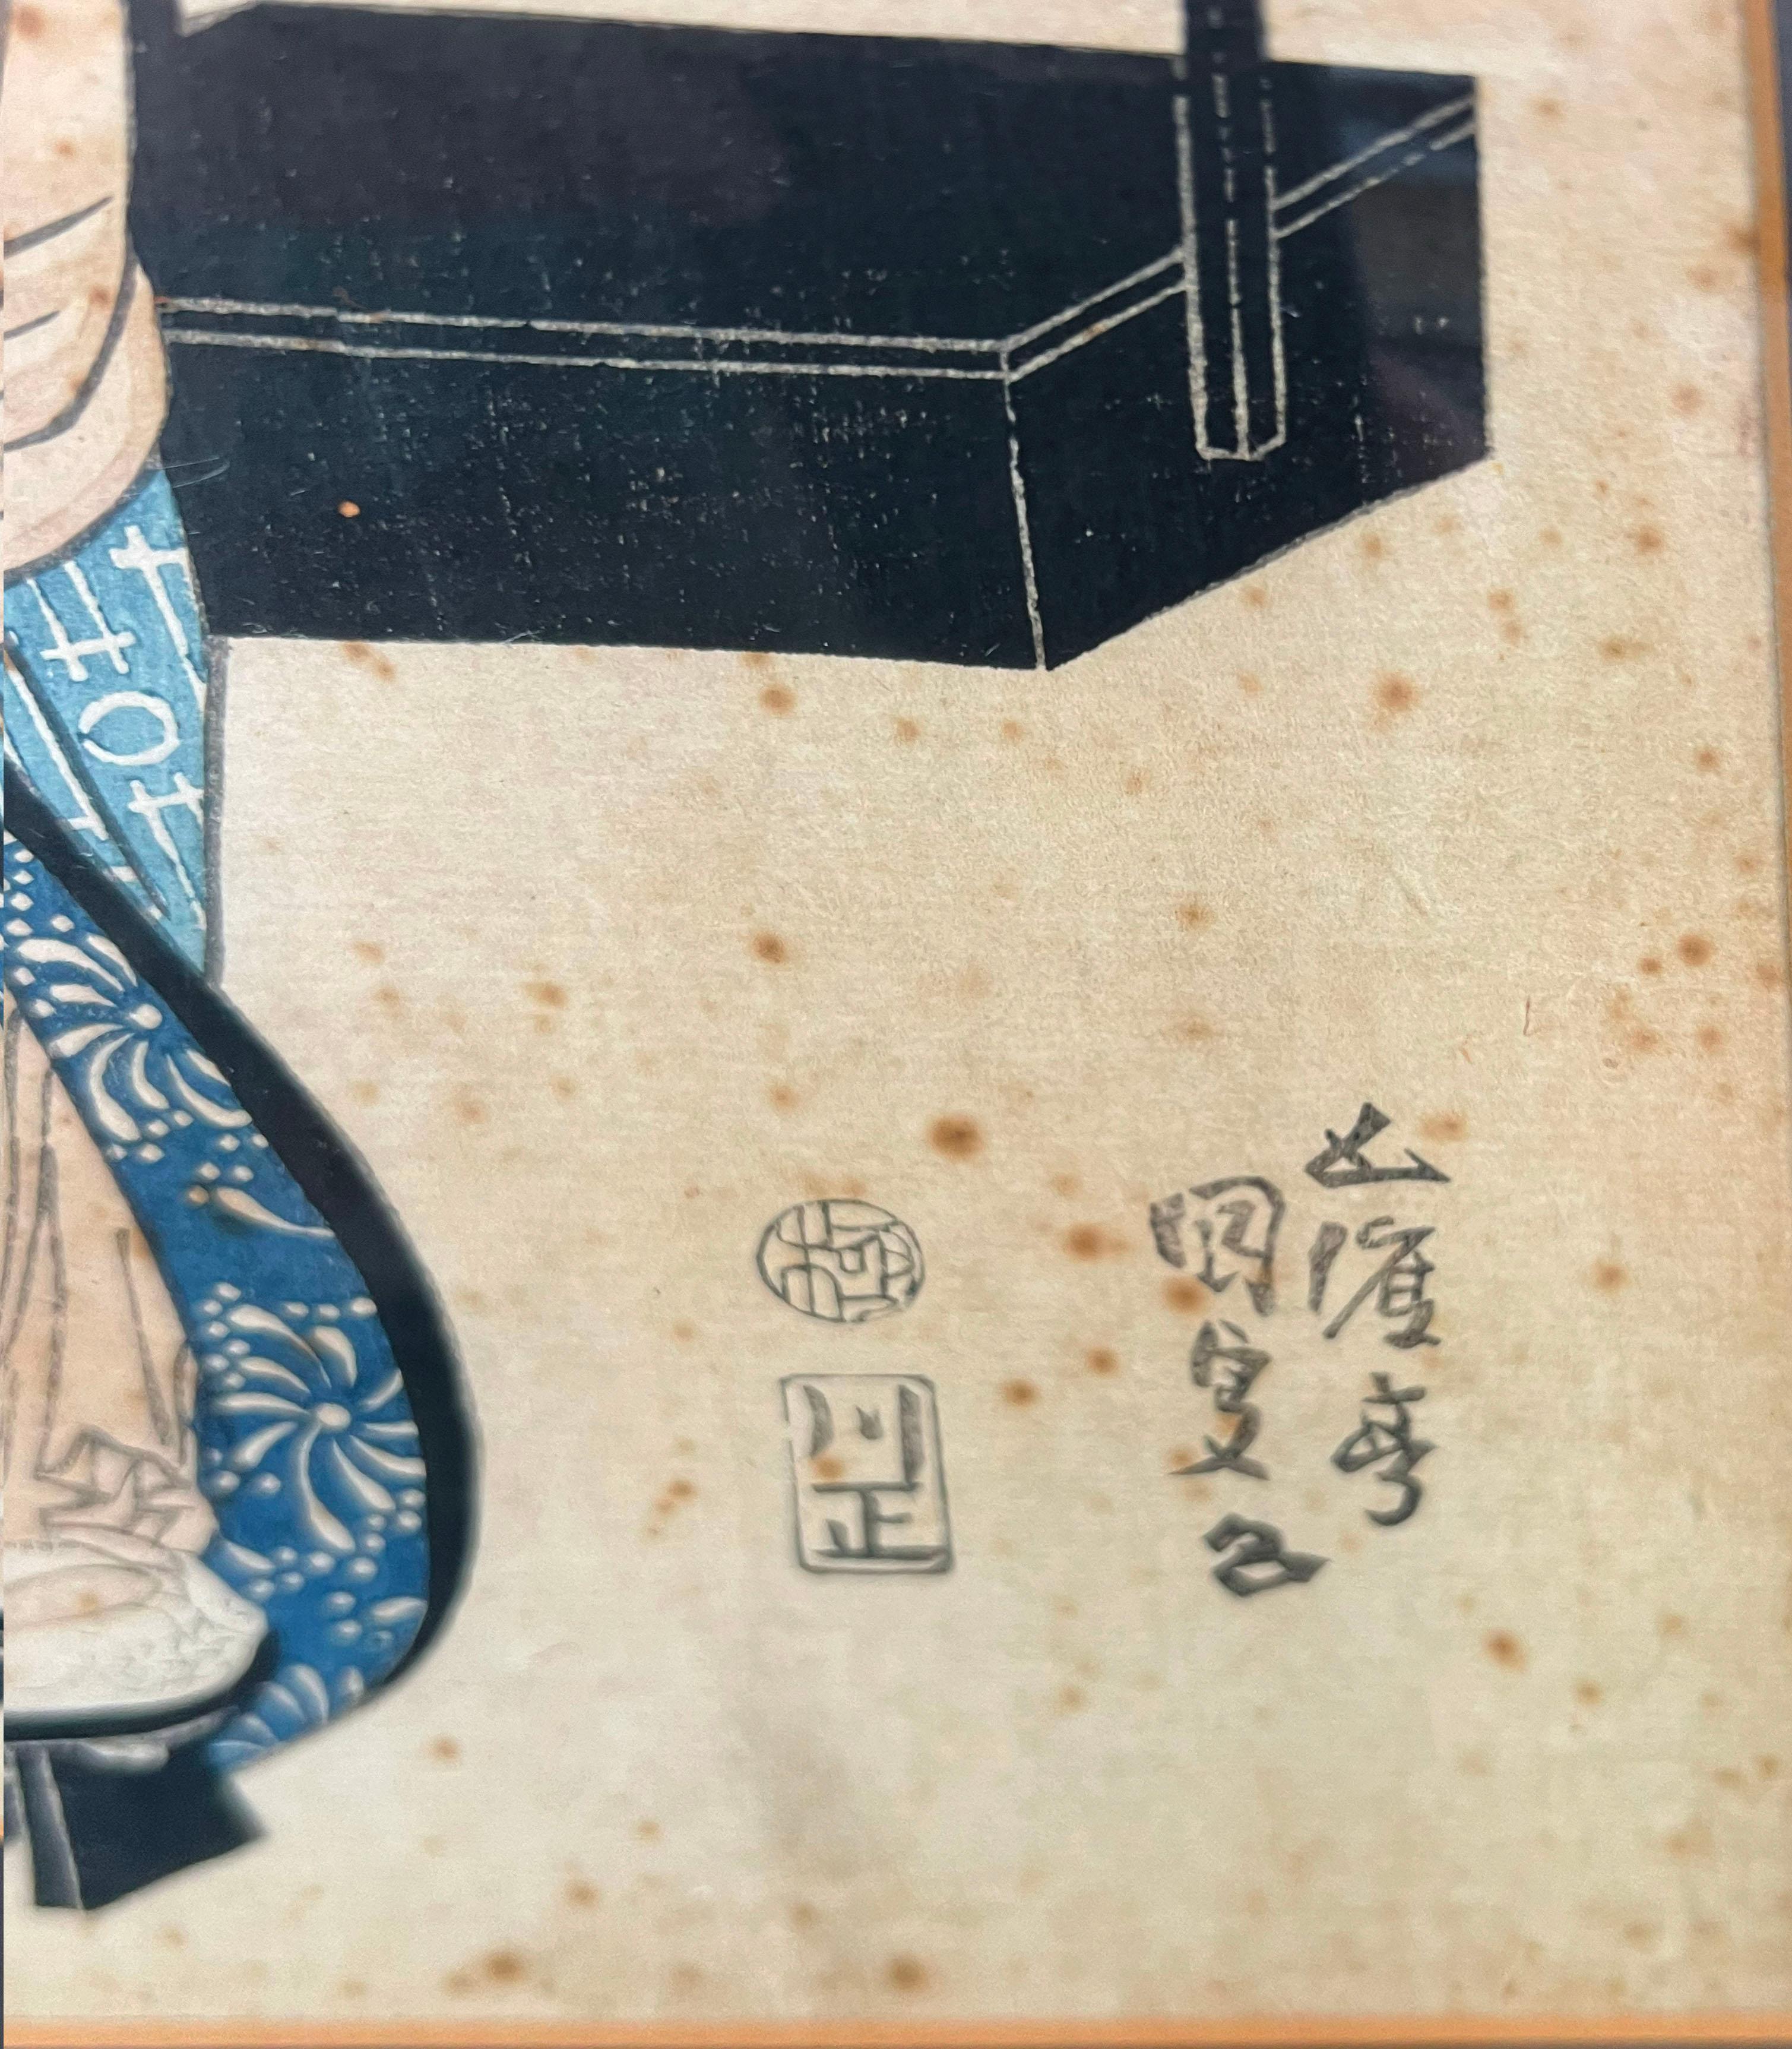 五渡亭
國貞画
極
川正